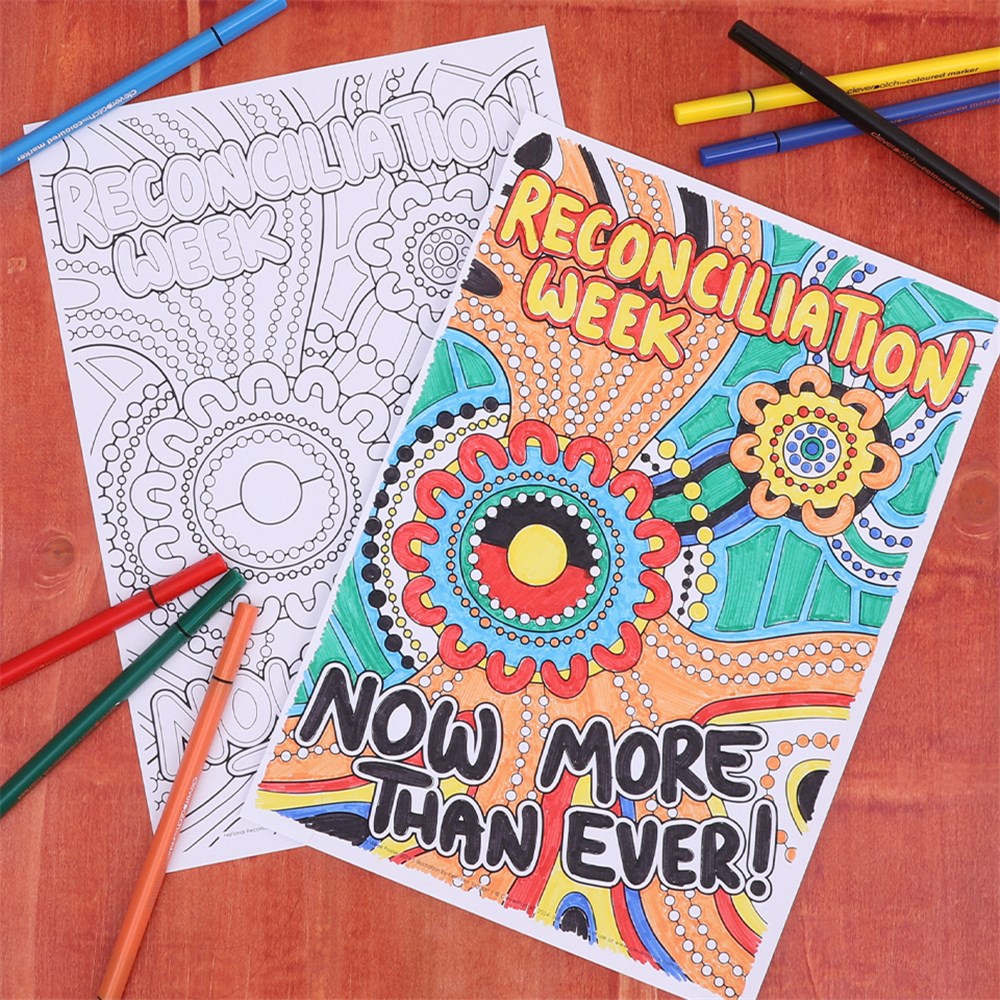 RECONCILIATION
WEEK
NOW MORE
THAN EVER!
RECONCILIATION
WEEK
NOW
cleverpatch coloured marker
cleverpatch coloured marker
coloured marker
cleverpatch coloured marker